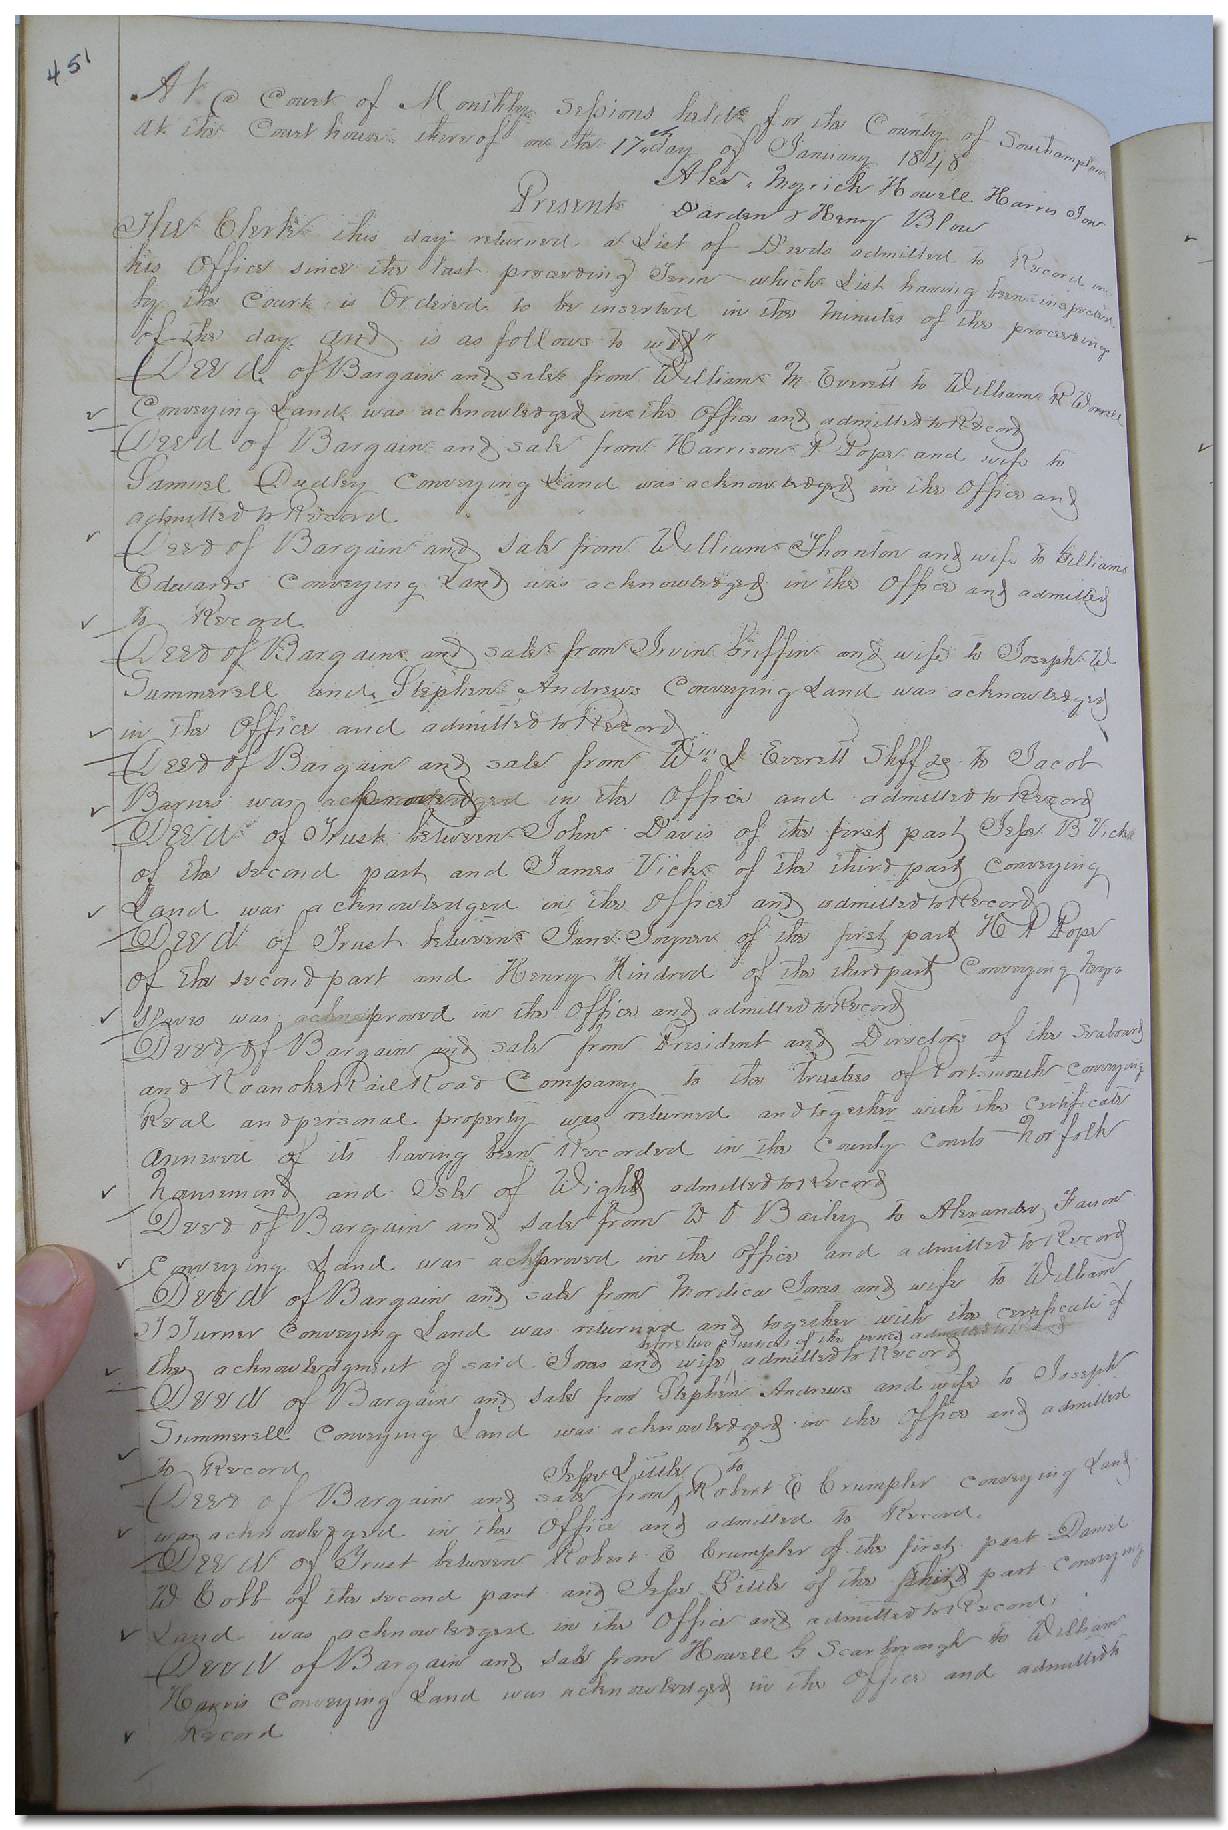 451
At a Court of Monthly Sessions held for the County of Southampton
at the Court house thereof on the 17th day of January 1848
Present Alex. Myrick Howell Harris Jon
Darden & Henry Blow
The Clerk this day returned a List of Deeds admitted to Record in
his Office since the last preceeding Term which List having been inspected
by the Court is Ordered to be inserted in the minutes of the proceeding
of the day and is as follows to wit"
Deed of Bargain and sale from William M Everett to William R
Conveying Land was acknowledged in the Office and admitted to Record
Deed of Bargain and sale from Harrison P Pope and wife to
Samuel Dudley Conveying Land was acknowledged in the Office and
admitted to Record
Deed of Bargain and sale from William Thornton and wife to
Edwards Conveying Land was acknowledged in the Office and admitted
to Record
Deed of Bargain and sale from Irvin Griffin and wife to Joseph W
Summerell and Stephen Andrews Conveying Land was acknowledged
in the Office and admitted to Record
Deed of Bargain and sale from Wm L Everett Shff &c to Jacob
Barnes was acknowledged in the Office and admitted to Record
Deed of Trust between John Davis of the first part Jesse B Vick
of the second part and James Vick of the third part Conveying
Land was acknowledged in the Office and admitted to Record
Deed of Trust between Jane Joyner of the first part H P Pope
of the second part and Henry Kindred of the third part Conveying Negro
Slaves was proved in the Office and admitted to Record
Deed of Bargain and sale from President and Directors of the Seaboard
and Roanoke Rail Road Company to the Trustees of Portsmouth Conveying
Real and personal property was returned and together with the certificate
annexed of its having been Recorded in the County Courts Norfolk
Nansemond and Isle of Wight admitted to Record
Deed of Bargain and sale from W O Bailey to Alexander Faison
Conveying Land was proved in the Office and admitted to Record
Deed of Bargain and sale from Mordica Jones and wife to William
J Turner Conveying Land was returned and together with the certificate of
before two Justices of the peace
the acknowledgment of said Jones and wife admitted to Record
Deed of Bargain and sale from Stephen Andrews and wife to Joseph
Summerell Conveying Land was acknowledged in the Office and admitted
to Record
Jesse Little to
Deed of Bargain and sale from Robert E Crumpler conveying Land
was acknowledged in the Office and admitted to Record.
Deed of Trust between Robert E Crumpler of the first part Daniel
W Cobb of the second part and Jesse Little of the third part conveying
Land was acknowledged in the Office and admitted to Record
Deed of Bargain and sale from Howell G Scarborough to William
Harris Conveying Land was acknowledged in the Office and admitted to
Record